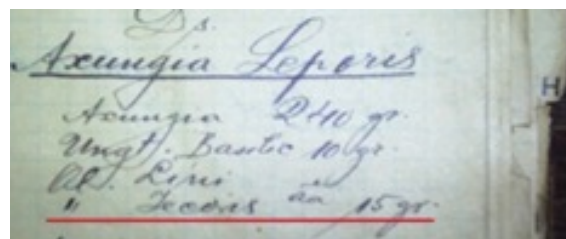 Ds.
Axungia Leporis
H
Axungia 240 gr.
Ungt. Basilic 10 gr.
Ol. Lini
" Jecoris aa 15 gr.